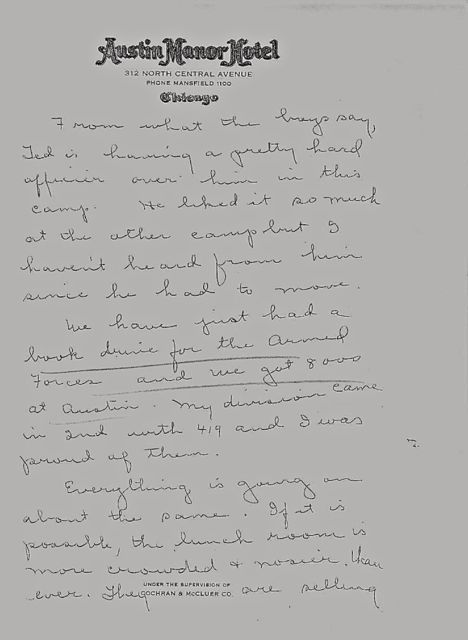 Austin Manor Hotel
312 NORTH CENTRAL AVENUE
PHONE MANSFIELD 1100
Chicago
From what the boys say,
Ted is having a pretty hard
officier over him in this
camp. He liked it so much
at the other camp but I
haven't heard from him
since he had to move.
We have just had a
book drive for the Armed
Forces and we got 8000
at Austin. My division came
in 2nd with 419 and I was
proud of them.
Everything is going on
about the same. If it is
possible, the lunch room is
more crowded & nosier than
ever. They are selling
UNDER THE SUPERVISION OF
COCHRAN & McCLUER CO.